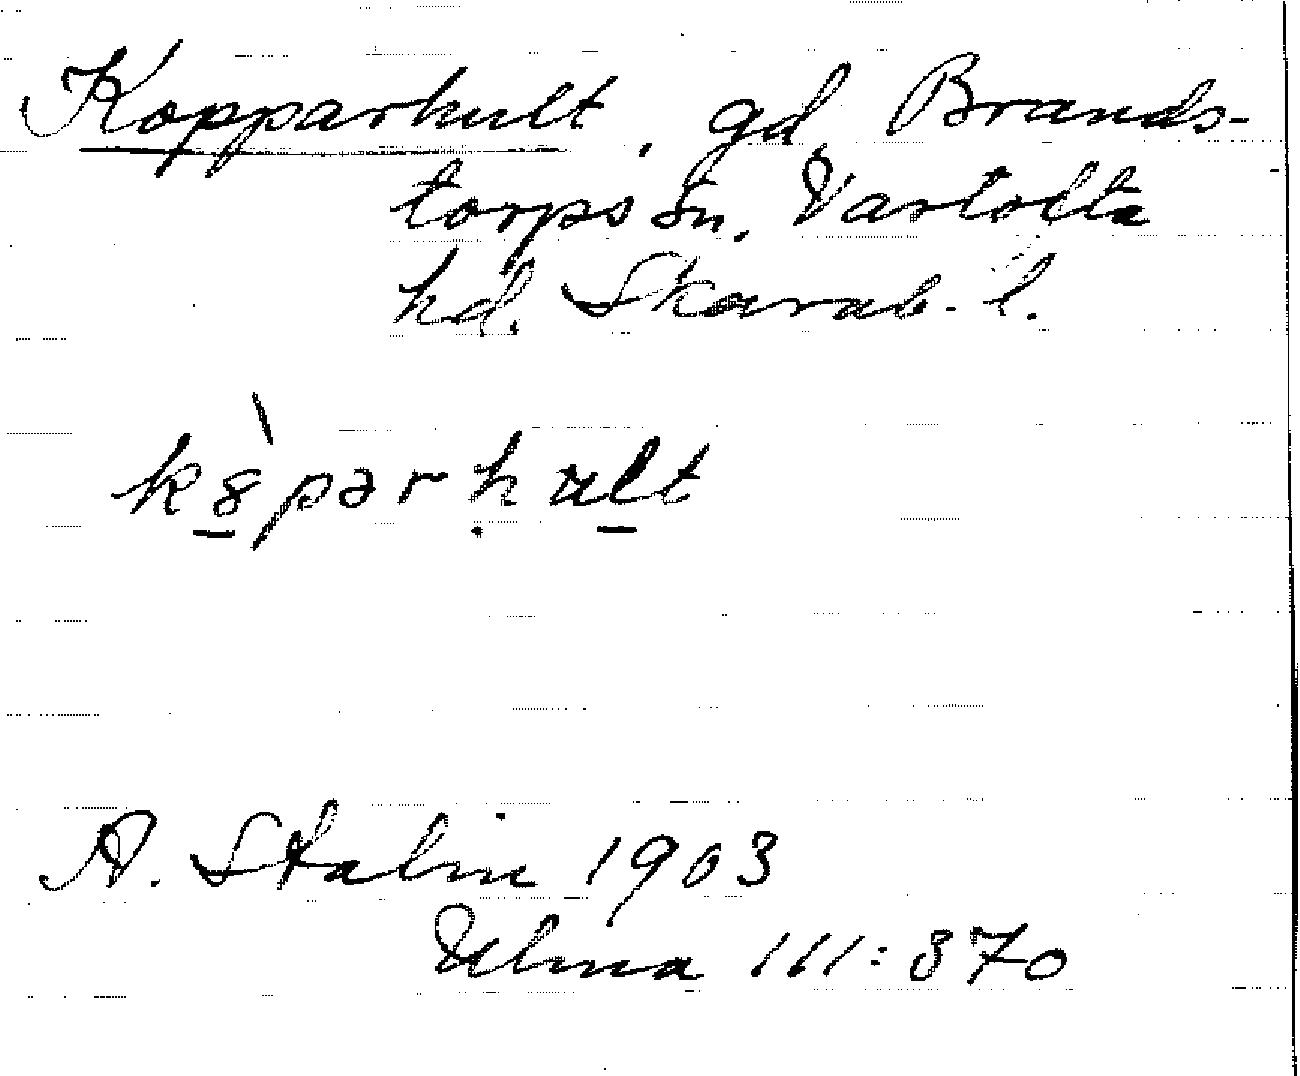 Kopparhult, gd, Brands-
torps sn. Vartofta
hd. Skarab. l.
kȣ̀pərhult
A. Stalin 1903
Ulma 111:370